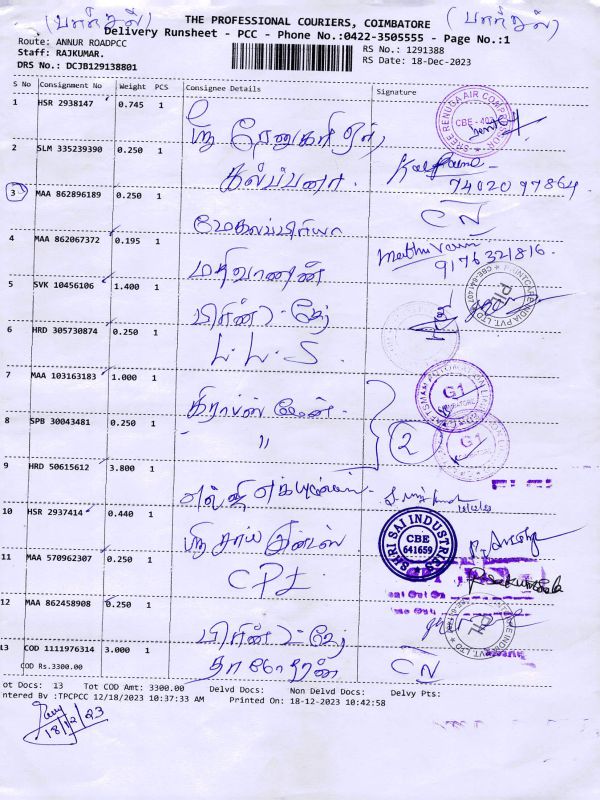 (பனிமதி) THE PROFESSIONAL COURIERS, COIMBATORE
Delivery Runsheet - PCC - Phone No.:0422-3505555 - Page No.:1
Route: ANNUR ROADPCC RS No.: 1291388
Staff: RAJKUMAR. RS Date: 18-Dec-2023
DRS No.: DCJB129138801
S No Consignment No Weight PCS Consignee Details Signature
1 HSR 2938147 0.745 1
ஸ்ரீ ரேணுகா ஏர்
SREE RENUGA AIR COMP
2 SLM 335239390 0.250 1
கல்பனா Kalpana
7402097864
3 MAA 862896189 0.250 1
மேகலப்பிரியா CN
4 MAA 862067372 0.195 1
மதிவாணன் Mathivanan
9176321816
5 SVK 10456106 1.400 1
பிரிண்ட் கேர்
PRINTCARE INDIA PVT. LTD
PIL
6 HRD 305730874 0.250 1
L.L.S
7 MAA 103163183 1.000 1
G1
8 SPB 30043481 0.250 1
" 2
G1
9 HRD 50615612 3.800 1
10 HSR 2937414 0.440 1
ஸ்ரீ சாய் இண்டஸ்
SHRI SAI INDUSTRIES
CBE
641659
11 MAA 570962307 0.250 1
CPI
12 MAA 862458908 0.250 1
பிரிண்ட் கேர்
PIL
13 COD 1111976314 3.000 1
COD Rs.3300.00
CN
ot Docs: 13 Tot COD Amt: 3300.00 Delvd Docs: Non Delvd Docs: Delvy Pts:
ntered By :TPCPCC 12/18/2023 10:37:33 AM Printed On: 18-12-2023 10:42:58
18/12/23